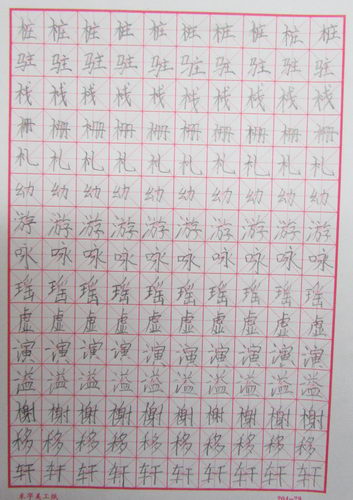 桩桩桩桩桩桩桩桩桩桩
驻驻驻驻驻驻驻驻驻驻
栈栈栈栈栈栈栈栈栈栈
栅栅栅栅栅栅栅栅栅栅
札札札札札札札札札札
幼幼幼幼幼幼幼幼幼幼
游游游游游游游游游游
咏咏咏咏咏咏咏咏咏咏
瑶瑶瑶瑶瑶瑶瑶瑶瑶瑶
虚虚虚虚虚虚虚虚虚虚
演演演演演演演演演演
溢溢溢溢溢溢溢溢溢溢
榭榭榭榭榭榭榭榭榭榭
移移移移移移移移移移
轩轩轩轩轩轩轩轩轩轩